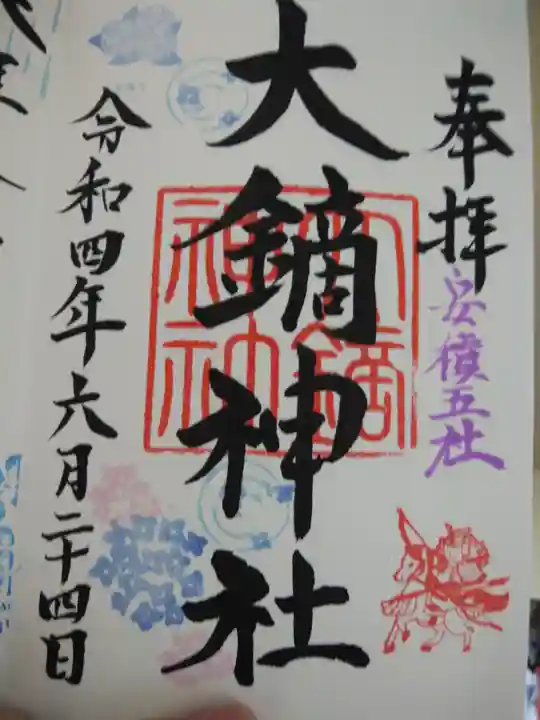 奉拝
安積五社
大鏑神社
大鏑
神社
令和四年六月二十四日